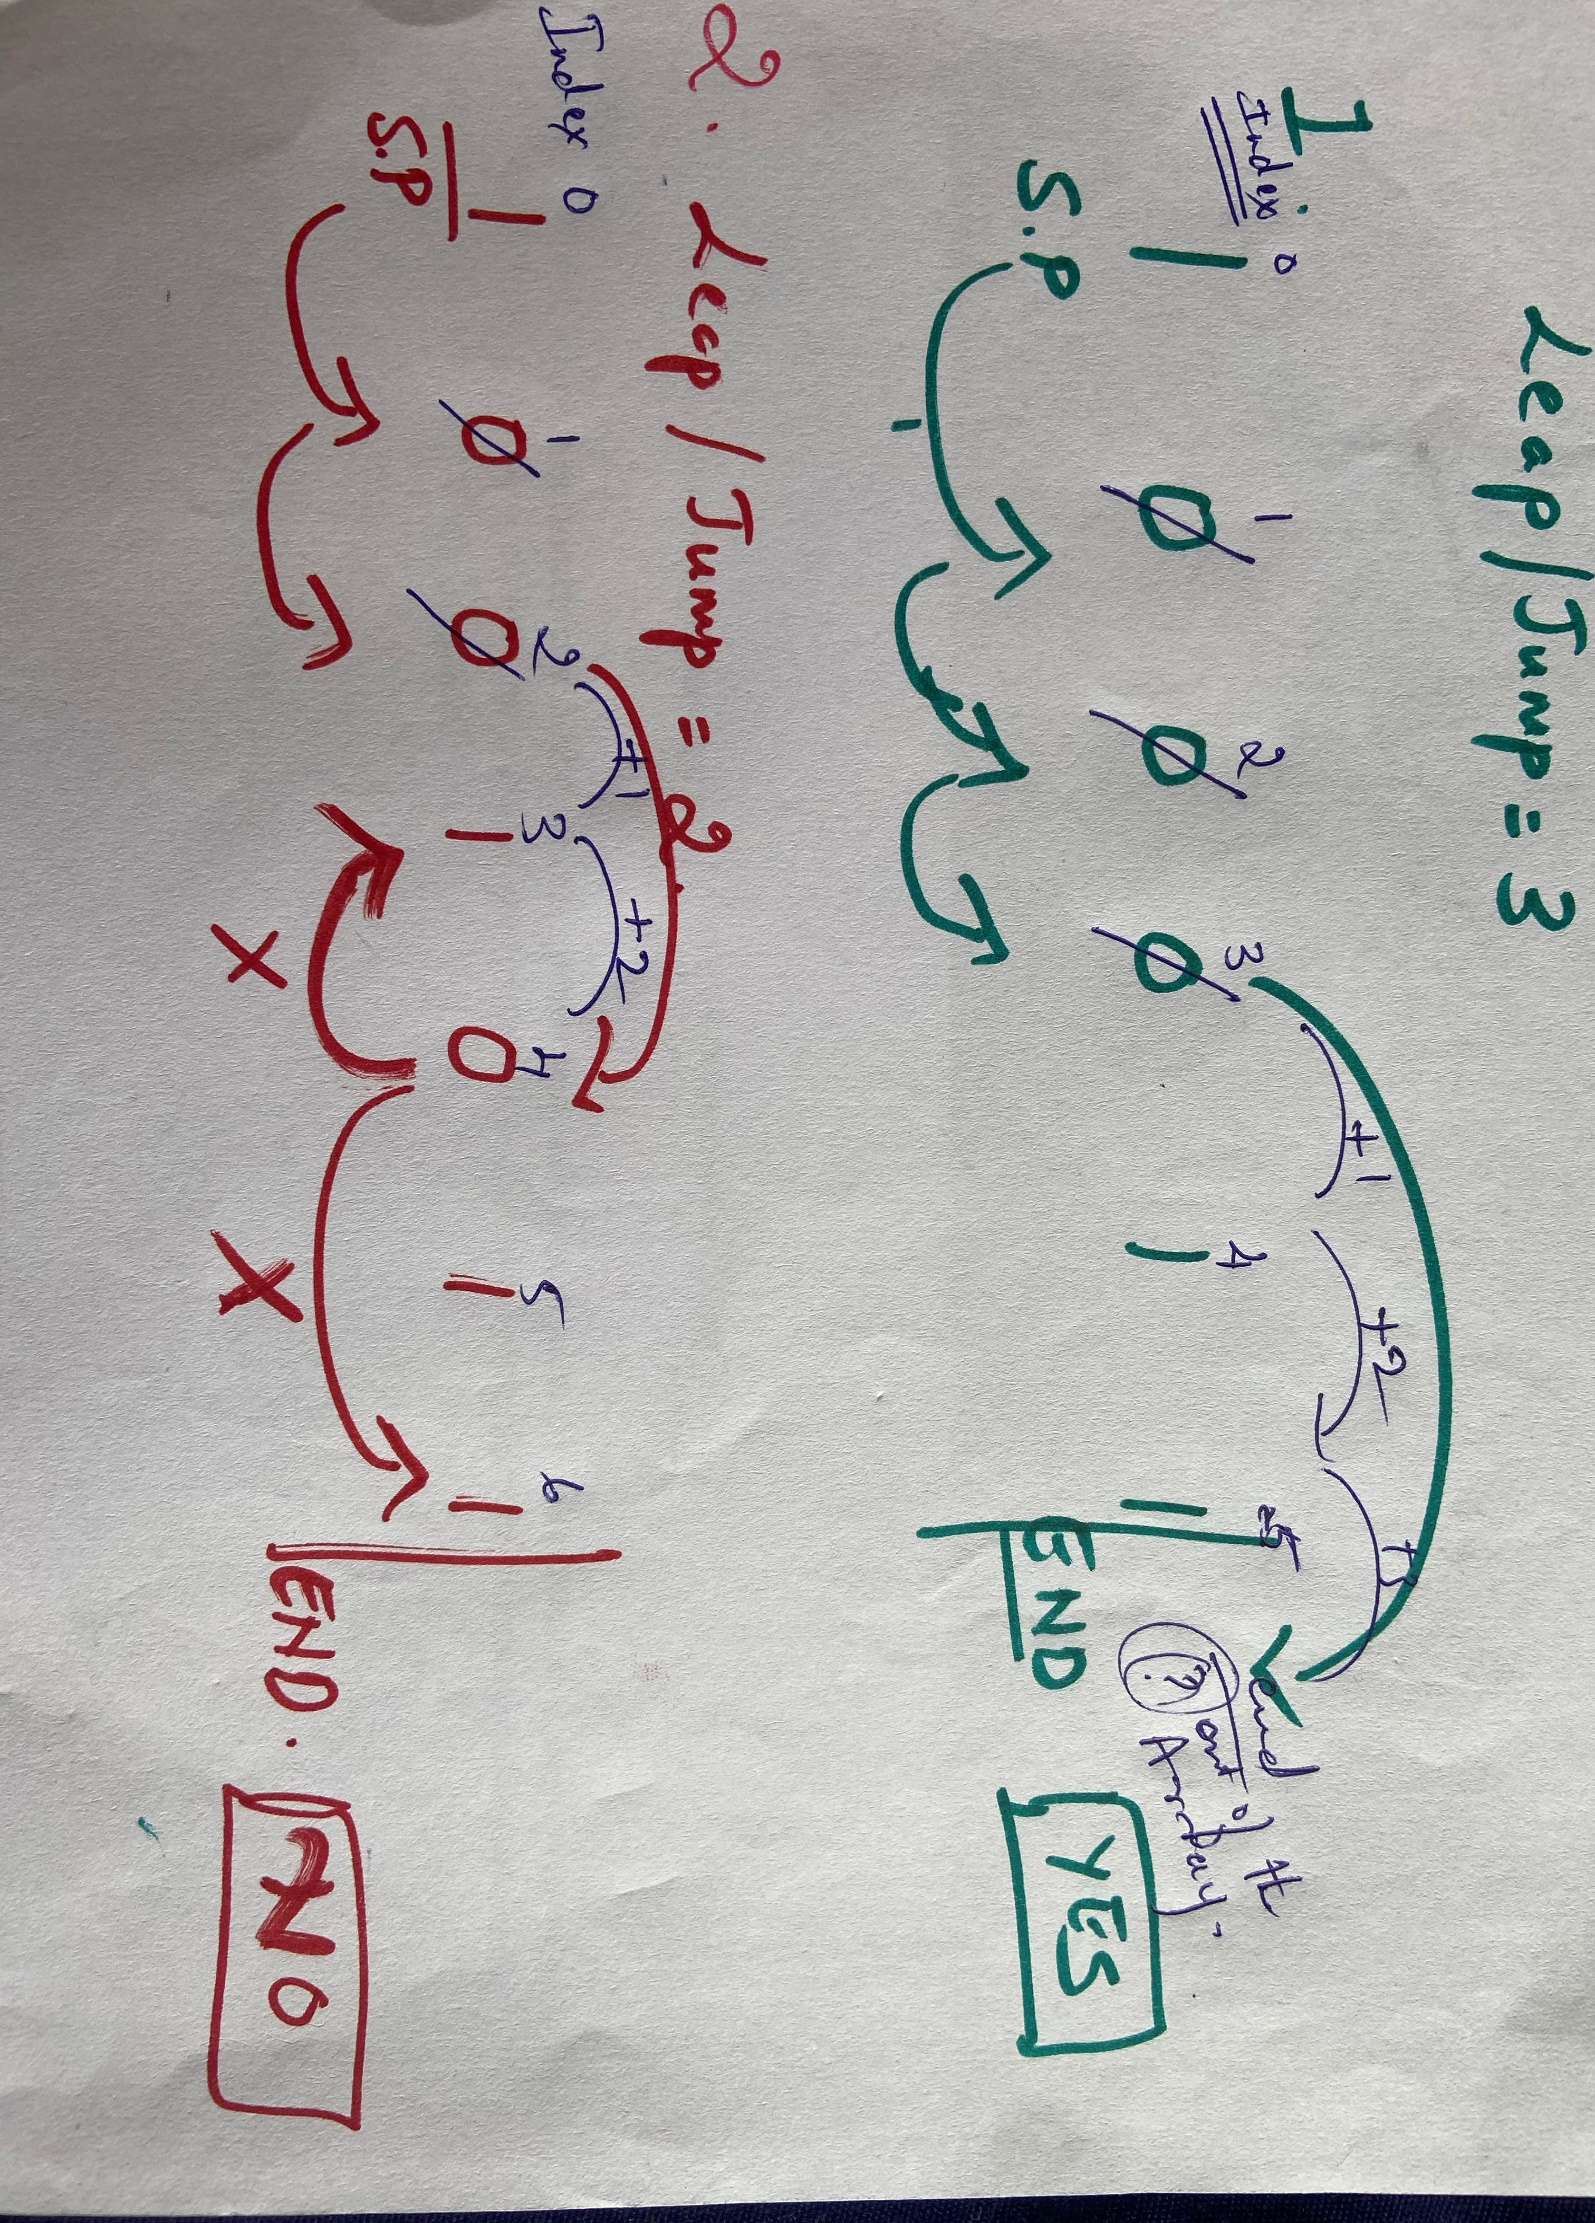 Leap/Jump = 3
1.
Index 0 1 2 3 4 5
1 0 0 0 1 1
S.P
+1 +2 +3
1
END
end
out of the
Array.
(?)
YES
2. Leap/Jump = 2.
Index 0 1 2 3 4 5 6
1 0 0 1 0 1 1
S.P
+1 +2
X X
END.
NO